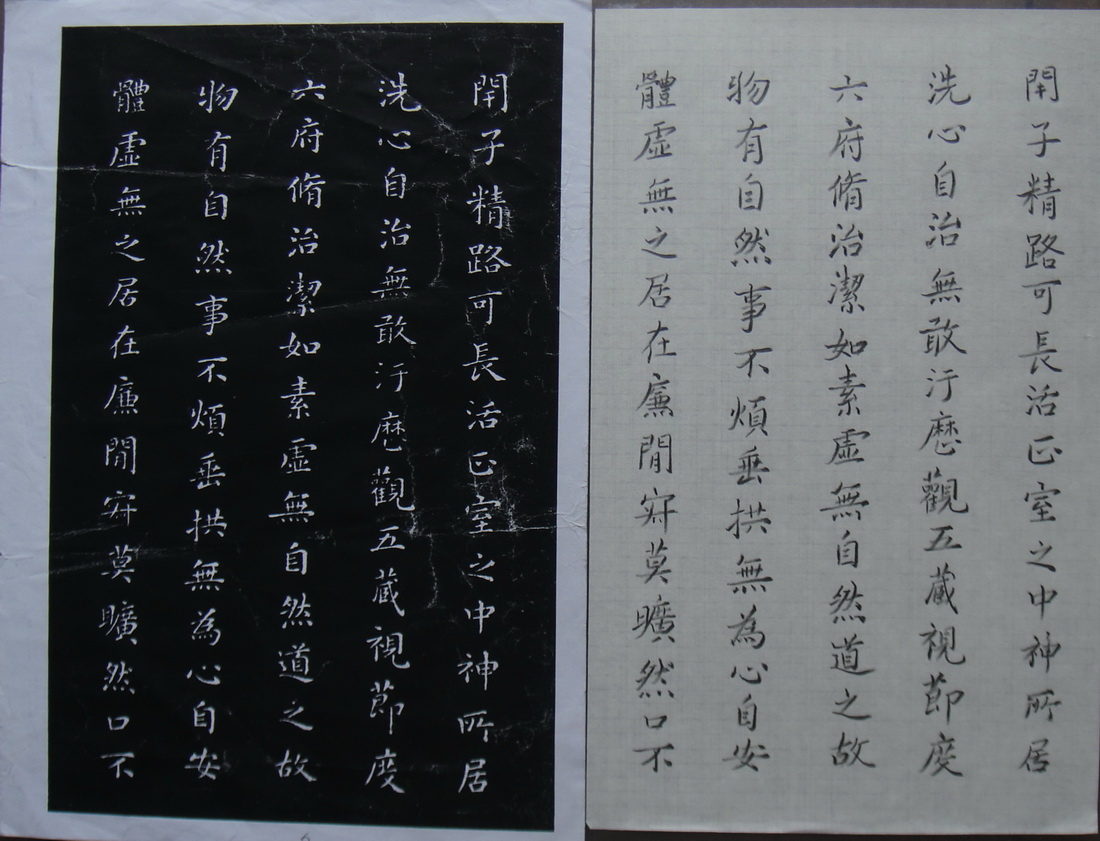 閇子精路可長活正室之中神所居
洗心自治無敢汙歷觀五藏視節度
六府脩治潔如素虛無自然道之故
物有自然事不煩垂拱無為心自安
體虛無之居在廉閒寂莫曠然口不
閇子精路可長活正室之中神所居
洗心自治無敢汙歷觀五藏視節度
六府脩治潔如素虛無自然道之故
物有自然事不煩垂拱無為心自安
體虛無之居在廉閒寂莫曠然口不